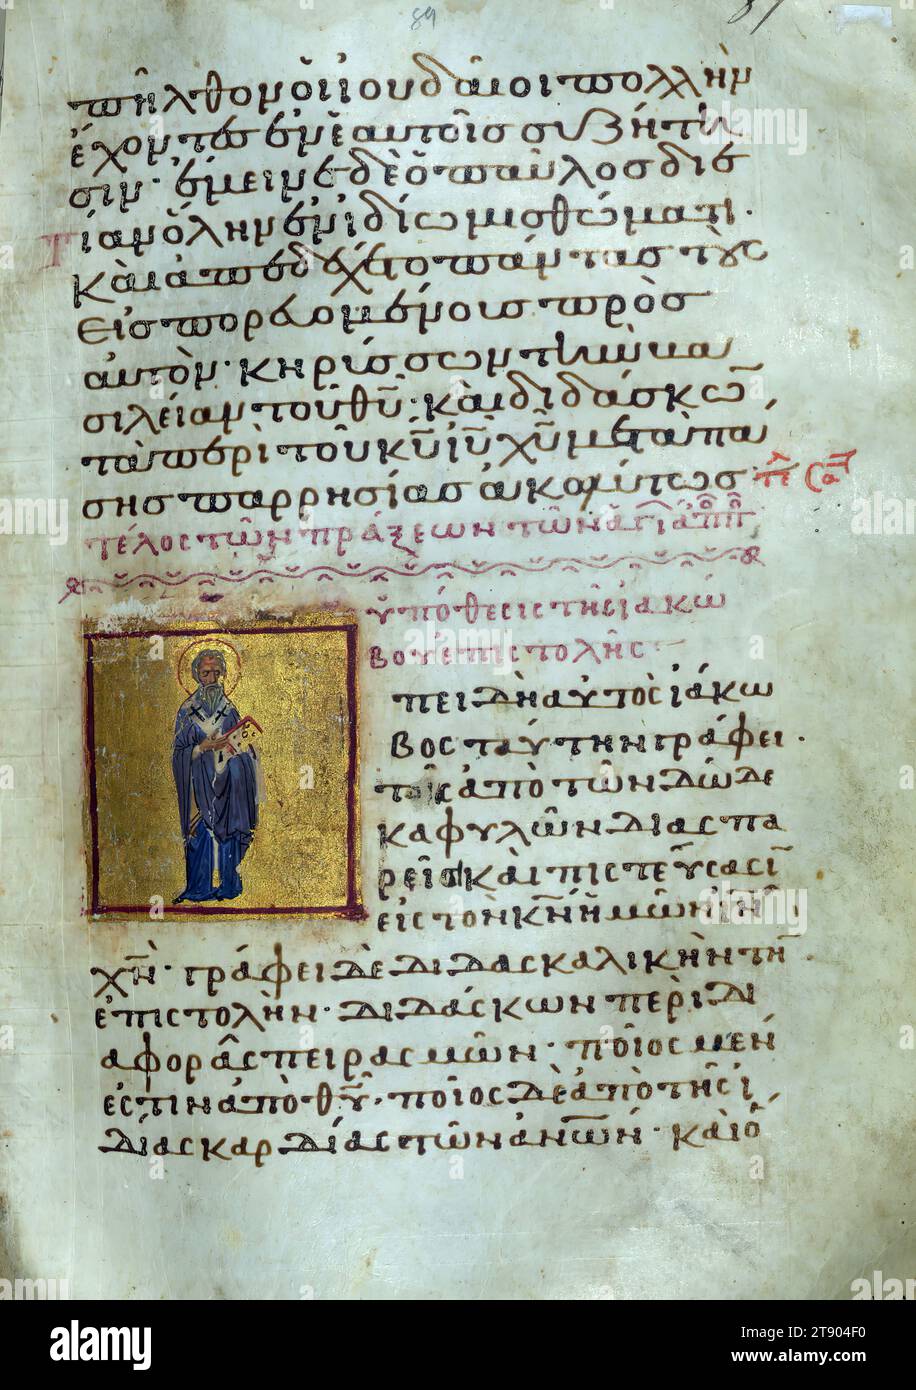 89
πῆλθον οἱ ἰουδαῖοι πολλὴν
ἔχοντες ἐν ἑαυτοῖς συζήτη
σιν· ἔμεινε δὲ ὁ παῦλος διε
τίαν ὅλην ἐν ἰδίω μισθώματι·
καὶ ἀπεδέχετο πάντας τοὺς
εἰσπορευομένους πρὸς
αὐτὸν· κηρύσσων τὴν βα
σιλείαν τοῦ θῦ· καὶ διδάσκων
τὰ περὶ τοῦ κῦ ἰῦ χῦ μετὰ πά
σης παρρησίας ἀκωλύτως
τέλος τῶν πράξεων τῶν ἁγί ἀπο
ὑπόθεσις τῆς ἰακώ
βου ἐπιστολῆς
πειδὴ αὐτὸς ἰάκω
βος ταύτην γράφει·
τοῖς ἀπὸ τῶν δώδε
κα φυλῶν διασπα
ρεῖσι καὶ πιστεύσασιν
εἰς τὸν κν ἡμῶν ιν
χν· γράφει δὲ διδασκαλικὴν τὴν
ἐπιστολὴν· διδάσκων περὶ δι
αφορᾶς πειρασμῶν· ποῖος μὲν
ἐστὶν ἀπὸ θῦ· ποῖος δὲ ἀπὸ τῆς ἰ
δίας καρδίας τῶν ἀνων· καὶ ὅ
alamy
Image ID: 2T904F0
www.alamy.com